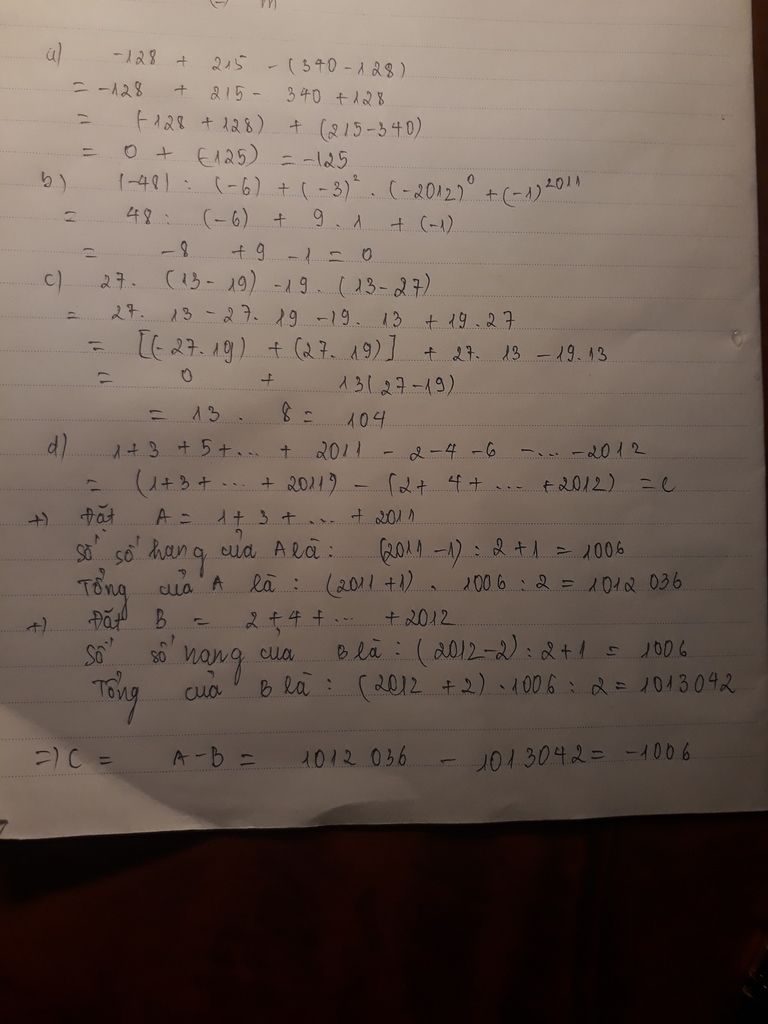 a) -128 + 215 - (340-128)
= -128 + 215 - 340 + 128
= (-128 + 128) + (215-340)
= 0 + (-125) = -125
b) |-48| : (-6) + (-3)² . (-2012)⁰ + (-1)²⁰¹¹
= 48 : (-6) + 9 . 1 + (-1)
= -8 + 9 - 1 = 0
c) 27. (13-19) - 19. (13-27)
= 27. 13 - 27. 19 - 19. 13 + 19.27
= [(-27.19) + (27.19)] + 27. 13 - 19.13
= 0 + 13(27-19)
= 13 . 8 = 104
d) 1+3 + 5+... + 2011 - 2-4-6 -... -2012
= (1+3+ ... + 2011) - (2+ 4+ ... +2012) = C
+) Đặt A = 1+3 + ... + 2011
Số số hạng của A là: (2011-1) : 2+1 = 1006
Tổng của A là : (2011+1) . 1006 : 2 = 1012 036
+) Đặt B = 2+4+ ... +2012
Số số hạng của B là : (2012-2) : 2+1 = 1006
Tổng của B là : (2012 +2) .1006 : 2 = 1013042
=) C = A-B = 1012 036 - 1013042 = -1006